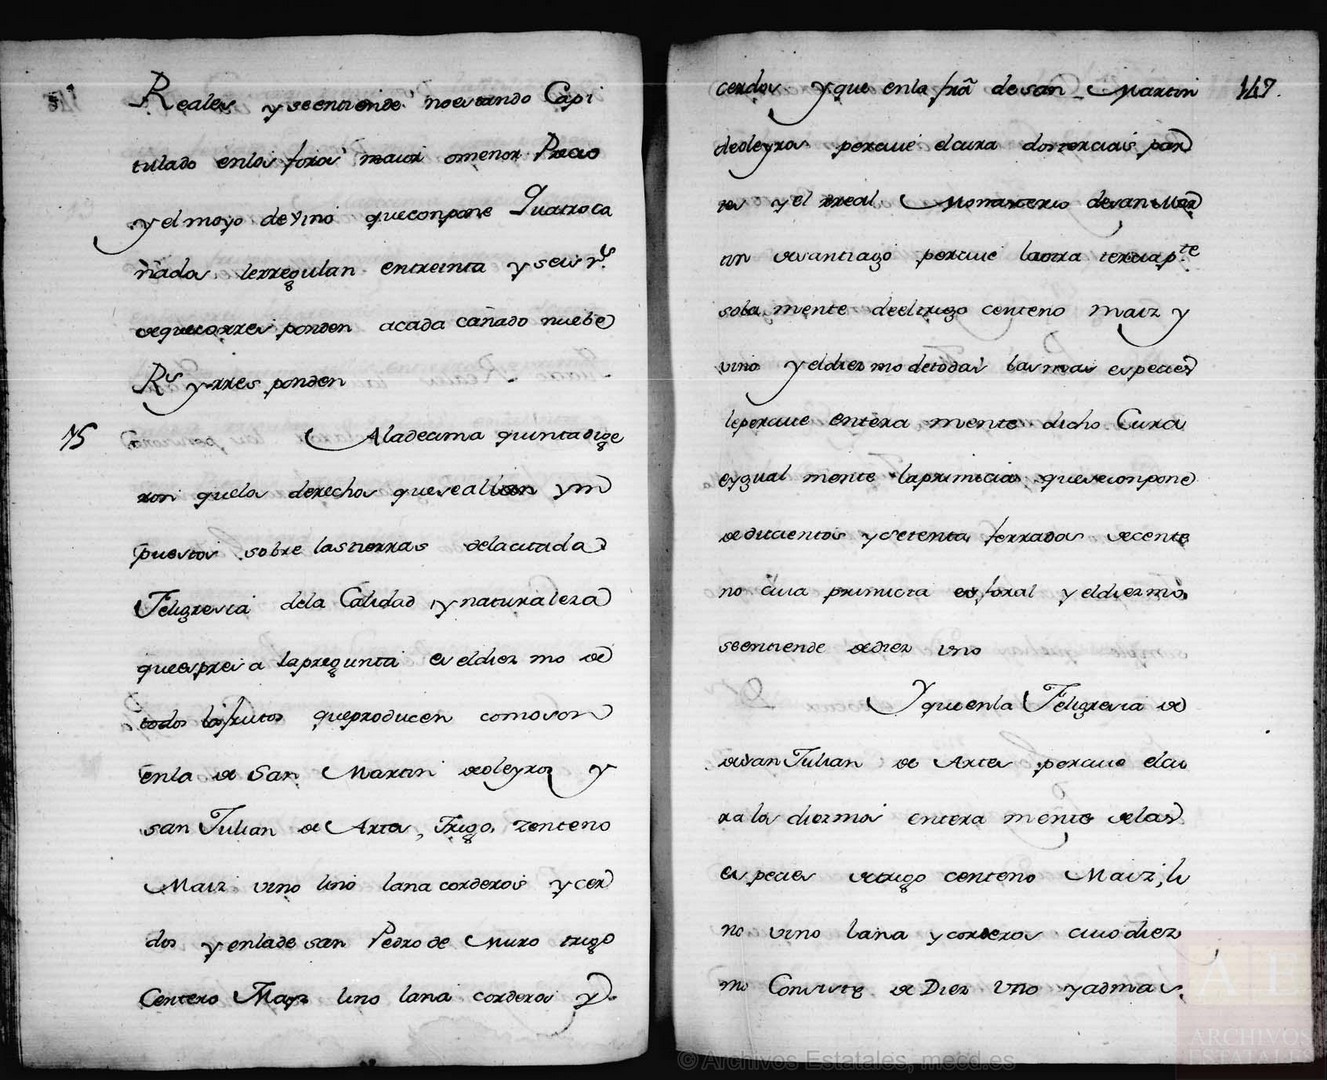 Reales y se entiende no estando Capi
tulado enlos foros maior omenor Precio
y el moyo de vino que conpone Quatro ca
ñados, lerregulan entreinta y seis r.s
deque corres ponden acada cañado nuebe
R.s y rres ponden
15 Aladecima quinta dige
ron quelos derechos quese allan ym
puestos sobre lastierras dela citada
Feligresia dela Calidad y naturaleza
que espresa lapregunta es eldiez mo de
todos los frutos queproducen como son
enla de San Martin deoleyros y
san Julian de Artes, Trigo, zenteno
Maiz vino lino lana corderos y cer
dos y enlade san Pedro de Muro trigo
Centeno Mayz lino lana corderos y
147.
cerdos y que enla frã de san Martin
deoleyros percive elcura dos terciais par
tes y el rreal Monasterio de san Mar
tin de santiago percive la otra tercia p.te
sola mente de el trigo centeno maiz y
vino y eldiezmo detodas las mas especies
lepercive entera mente dicho Cura
eygual mente laprimicia que se conpone
de ducientos y setenta ferrados de cente
no cuia primicia es foral y eldiezmo
se entiende de diez uno
Y que enla Feligresia de
de san Julian de Artes percive elcu
ra los diezmos entera mente delas
especies de trigo centeno Maiz, li
no vino lana y corderos cuio diez
mo Consiste de Diez uno y ademas
© Archivos Estatales, mecd.es
AE
ARCHIVOS
ESTATALES